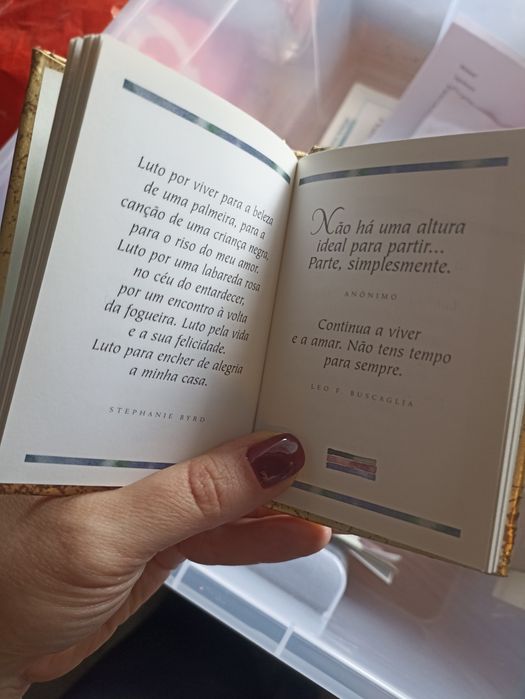 Luto por viver para a beleza
de uma palmeira, para a
canção de uma criança negra,
para o riso do meu amor.
Luto por uma labareda rosa
no céu do entardecer,
por um encontro à volta
da fogueira. Luto pela vida
e a sua felicidade.
Luto para encher de alegria
a minha casa.
STEPHANIE BYRD
Não há uma altura
ideal para partir...
Parte, simplesmente.
ANÓNIMO
Continua a viver
e a amar. Não tens tempo
para sempre.
LEO F. BUSCAGLIA